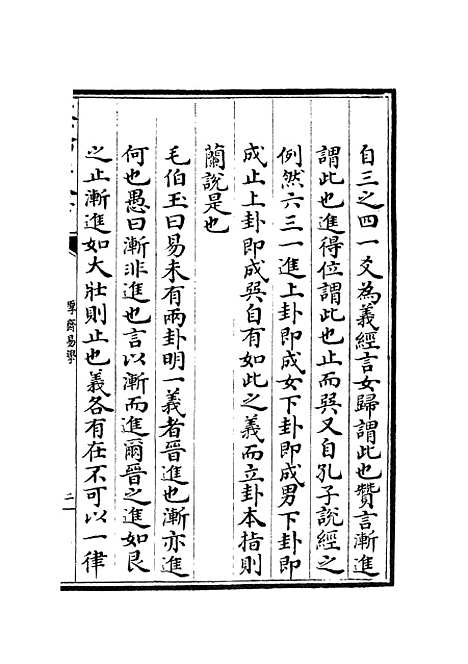 自三之四一爻為義經言女歸謂此也贊言漸進
謂此也進得位謂此也止而巽又自孔子說經之
例然六三一進上卦即成女下卦即成男下卦即
成止上卦即成巽自有如此之義而立卦本指則
蘭說是也
毛伯玉曰易未有兩卦明一義者晉進也漸亦進
何也愚曰漸非進也言以漸而進爾晉之進如艮
之止漸進如大壯則止也義各有在不可以一律
厚齋易學
二